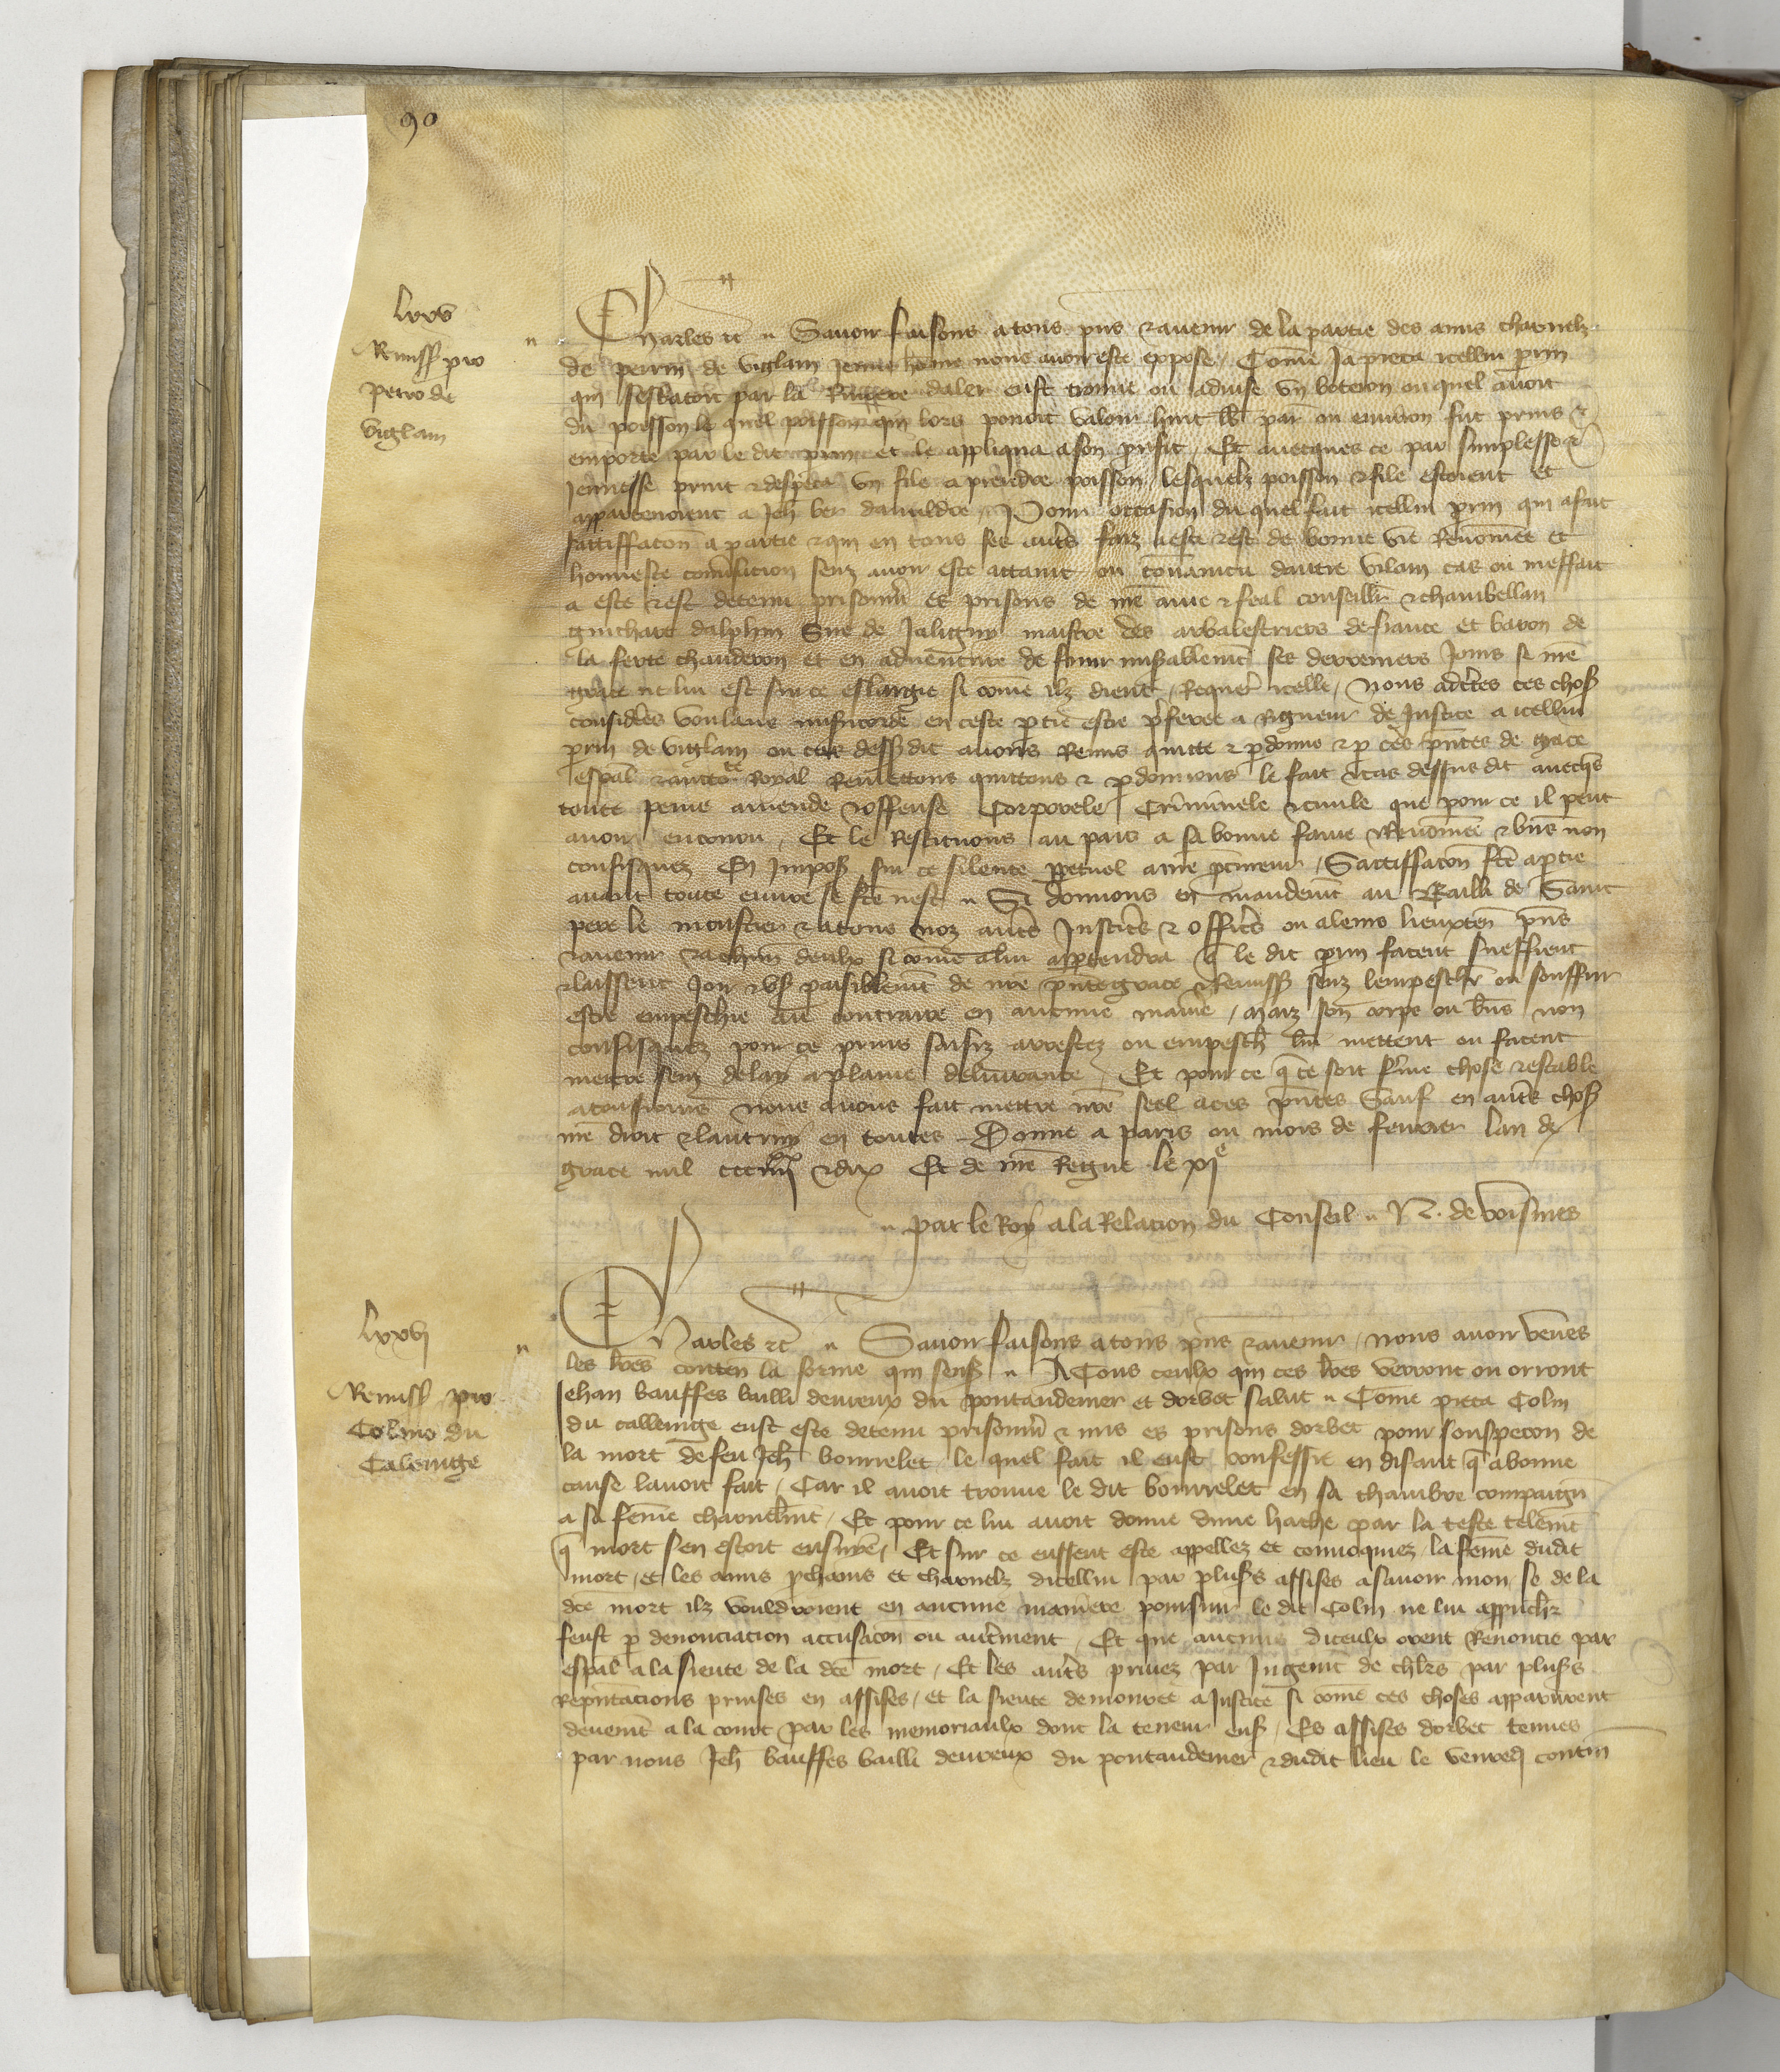 90
lxxv
Remiss pro
Petro de
Viglain
Charles etc Savoir faisons a tous pns et avenir de la partie des amis charnelz
de perrin de Viglain jeune home nous avoir este expose Come ja pieca icellui prin
qui sesbatoit par la Riviere daler eust trouve ou advise un boteron ou quel avoit
du poisson le quel poisson qui lors povoit valoir huit s par ou environ fut prins et
emporte par le dit prin et le appliqua a son prufit Et avecques ce par simplesse et
jeunesse print et despeca un file a prendre poisson lesquelz poisson et file estoient et
appartenoient a Jeh Pour occasion du quel fait icellui prin qui a fait
satisfacon a partie et qui en tous ses autres faiz a este et est de bonne vie Renomee et
honneste conversacion senz avoir este attaint ou convaincu dautre vilain cas ou meffait
a este et est detenu prisonnier es prisons de nre ame et feal conseiller et chambellan
guichart dalphin Sire de Jaligny maistre des arbalestriers de france et baron de
la ferte chauderon et en adventure de finir miserablement ses derreniers jours se nre
grace ne lui est sur ce eslargie si come ilz dient Requer icelle Nous adcertes ces choses
considerees voulans misericorde en ceste ptie estre pferee a Rigueur de Justice a icellui
prin de Viglain ou cas dessusdit avons Remis quitte et pdonne et p ces pntes de grace
espal et auctorite Royal Remettons quittons et pdonnons le fait et cas dessus dit avecqs
toute peine amende et offense Corporele Criminele et civile que pour ce il peut
avoir encouru Et le Restituons au pais a sa bonne fame et Renomee et biens non
confisquez En impos sur ce silence ppetuel a nre pcureur Satisfacon fcte a ptie
avant toute euvre se fcte nest Si donnons en mandement au Bailli de Saint
pere le moustier et a tous noz autres Justiciers et Officiers ou a leurs lieuxten pns
et avenir et a chun deulx si come a lui apptendra q le dit prin facent sueffrent
et laissent joir et user paisiblement de nre pnte grace et Remiss senz lempescher ou souffrir
estre empeschie au contraire en aucune maniere Maiz son corps ou biens non
confisquez pour ce prins saisiz arrestez ou empesch lui mettent ou facent
mettre senz delay a plaine delivrance Et pour ce q ce soit ferme chose et estable
a tousjours Nous avons fait mettre nre seel a ces pntes Sauf en autres choses
nre droit et lautruy en toutes Donne a paris ou mois de fevrier lan de
grace mil cccc et dix Et de nre Regne le xxxi e
par le Roy a la Relacion du Conseil N. de Voisines
lxxvj
Remiss pro
Colino du
Calenige
Charles etc Savoir faisons a tous pns et avenir Nous avoir veues
les lres conten la forme qui sensuit A Tous ceulx qui ces lres verront ou orront
Jehan bauffes bailli devreux du pontaudemer et dorbec salut Come pieca Colin
du callenige eust este detenu prisonnier et mis es prisons dorbec pour souspecon de
la mort de feu Jeh bourrelet le quel fait il eust confessie en disant q a bonne
cause lavoit fait Car il avoit trouve le dit bourrelet en sa chambre compaign
a sa feme charnelment Et pour ce lui avoit donne dune hache par la teste telement
q mort sen estoit ensuiye Et sur ce eussent este appellez et convoquiez la feme dudit
mort et les amis prchains et charnelz dicellui par pluseurs assises a savoir mon se de la
dce mort ilz vouldroient en aucune maniere poursuir le dit Colin ne lui approuch
feust p denonciacion accusacon ou autrement Et que aucuns diceulx orent Renoncie par
espal a la sieute de la dce mort Et les autres privez par jugement de par pluseurs
Reputacions prinses en assises et la sieute demouree a justice si come ces choses apparurent
deuement a la court par les memoriaulx dont la teneur ensuit Es assises dorbec tenues
par nous Jeh bauffes bailli devreux du pontaudemer et dudit lieu le vendredi contin